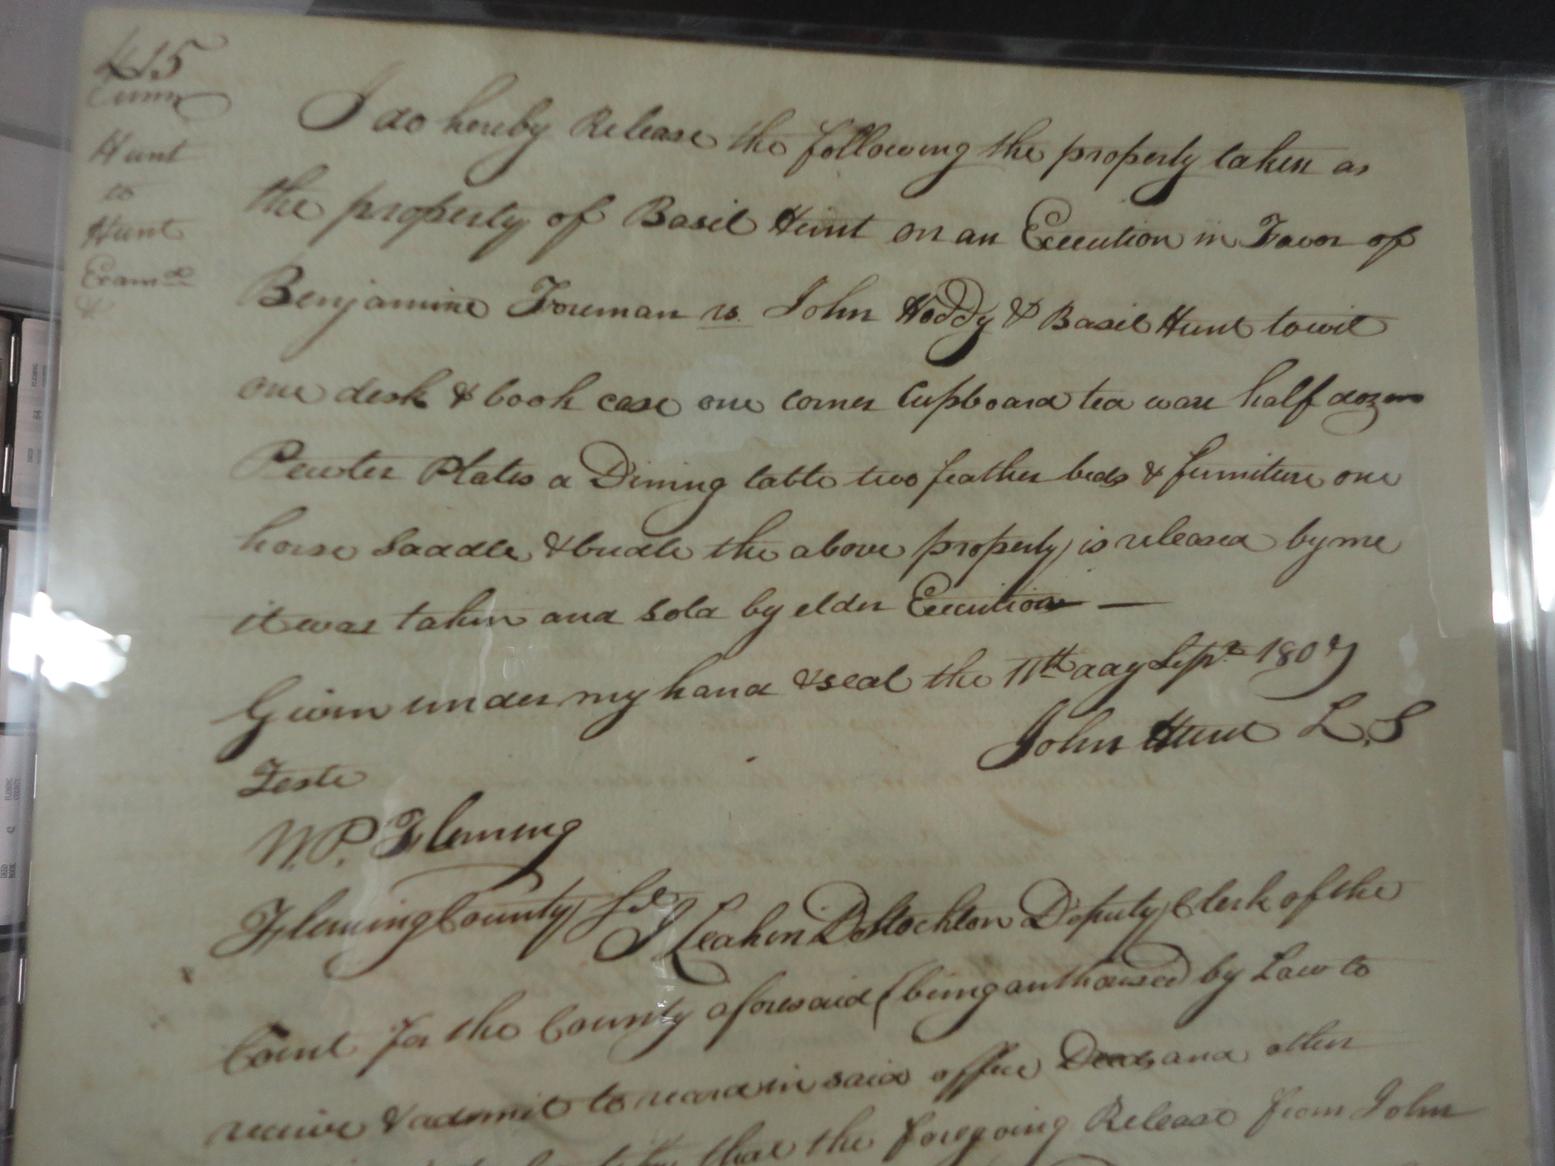 415
Hunt
to
Hunt
Exam.d
&
I do hereby Release the following the property taken as
the property of Basil Hunt on an Execution in Favor of
Benjamine Foreman vs. John Hoddy & Basil Hunt towit
one desk & book case one corner Cupboard tea ware half dozen
Pewter Plates a Dining table two feather beds & furniture one
horse Saddle & bridle the above property is released by me
it was taken and sold by elder Execution —
Given under my hand & seal the 11th day Sept. 1807
John Hunt L.S
Teste
W.P. Fleming
Fleming County Sct I Leaken D Stockton Deputy Clerk of the
Court for the County aforesaid (being authorised) by Law to
receive & admit to record in said office Deeds and other
that the foregoing Release from John